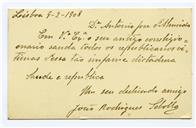 Lisboa 5-2-1908
Dr. Antonio José d'Almeida
Em V. Exª o seu antigo
onario sauda todos os republicanos vi-
timas d'essa tão infame dictadura
Saude e republica
Um seu dedicado amigo
João Rodrigues